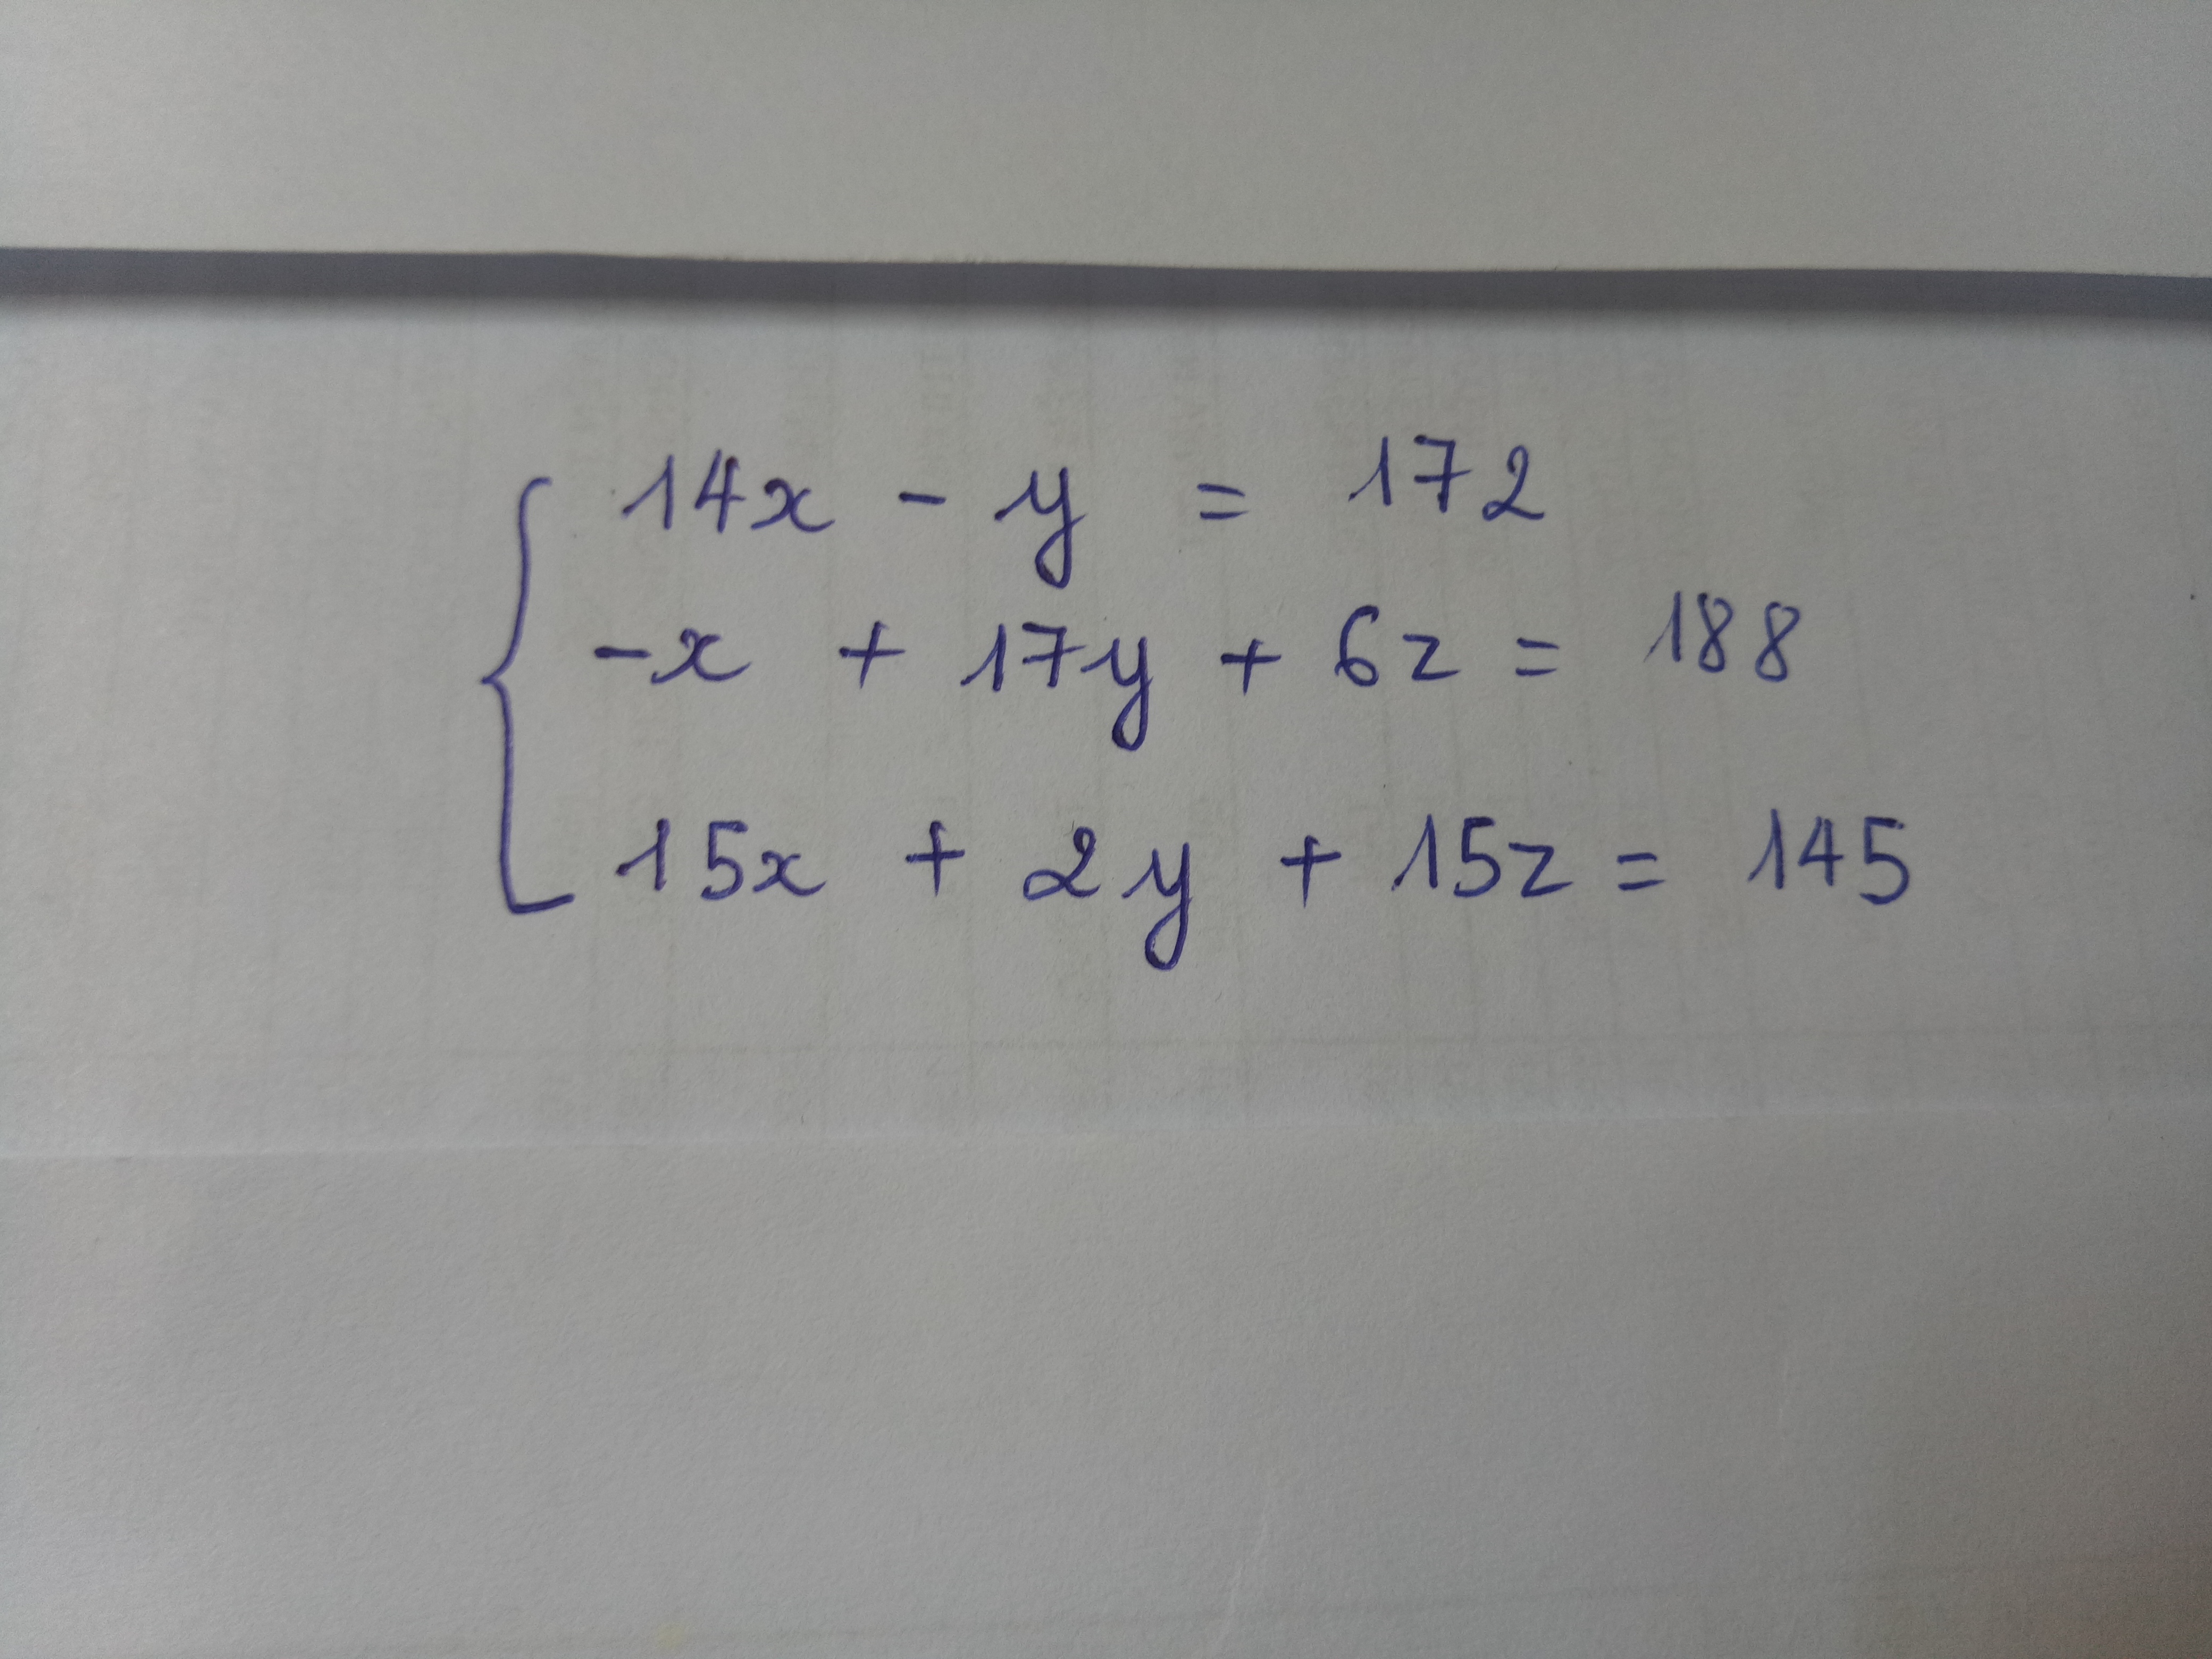 14x - y = 172
-x + 17y + 6z = 188
15x + 2y + 15z = 145